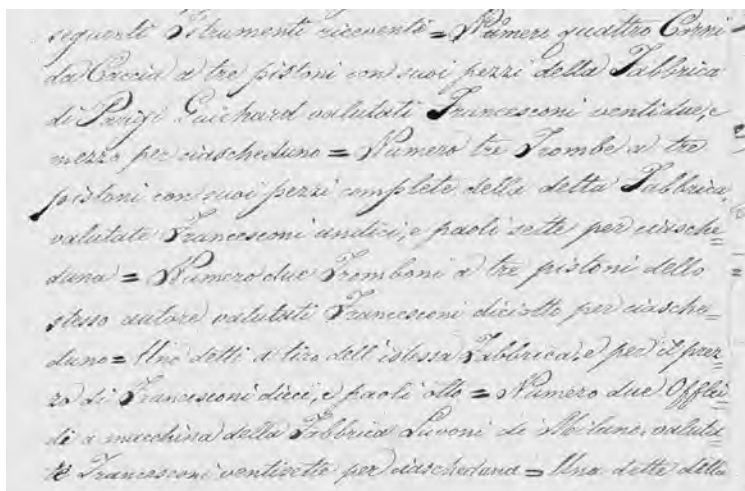 seguenti Istrumenti riceventi = Numero quattro Corni
da Caccia a tre pistoni con suoi pezzi della Fabbrica
di Parigi Guichard valutati Francesconi ventidue, e
mezzo per ciascheduno = Numero tre Trombe a tre
pistoni con suoi pezzi complete della detta Fabbrica,
valutate Francesconi undici, e paoli sette per ciasche=
duna = Numero due Tromboni a tre pistoni dello
stesso autore valutati Francesconi diciotto per ciasche=
duno = Uno detto a tiro dell'istessa Fabbrica, e per il prez=
zo di Francesconi dieci, e paoli otto = Numero due Offlei
di a macchina della Fabbrica Luvoni di Milano, valuta
te Francesconi ventisette per ciascheduna = Una detta della